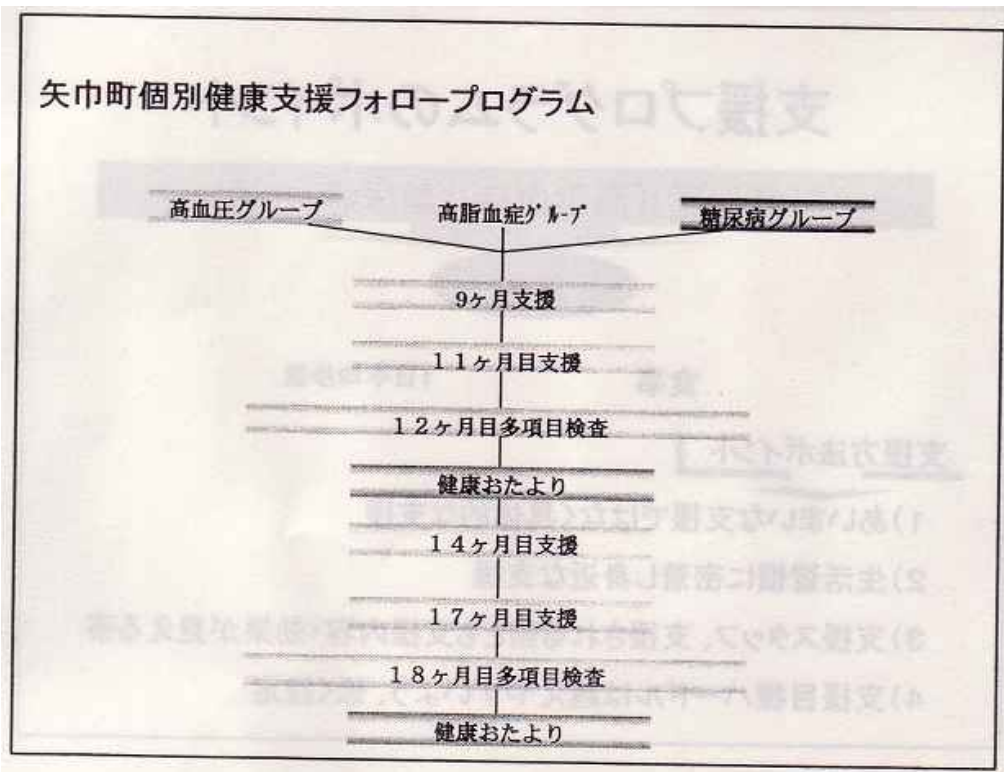 矢巾町個別健康支援フォロープログラム
高血圧グループ 高脂血症グループ 糖尿病グループ
9ヶ月支援
11ヶ月目支援
12ヶ月目多項目検査
健康おたより
14ヶ月目支援
17ヶ月目支援
18ヶ月目多項目検査
健康おたより